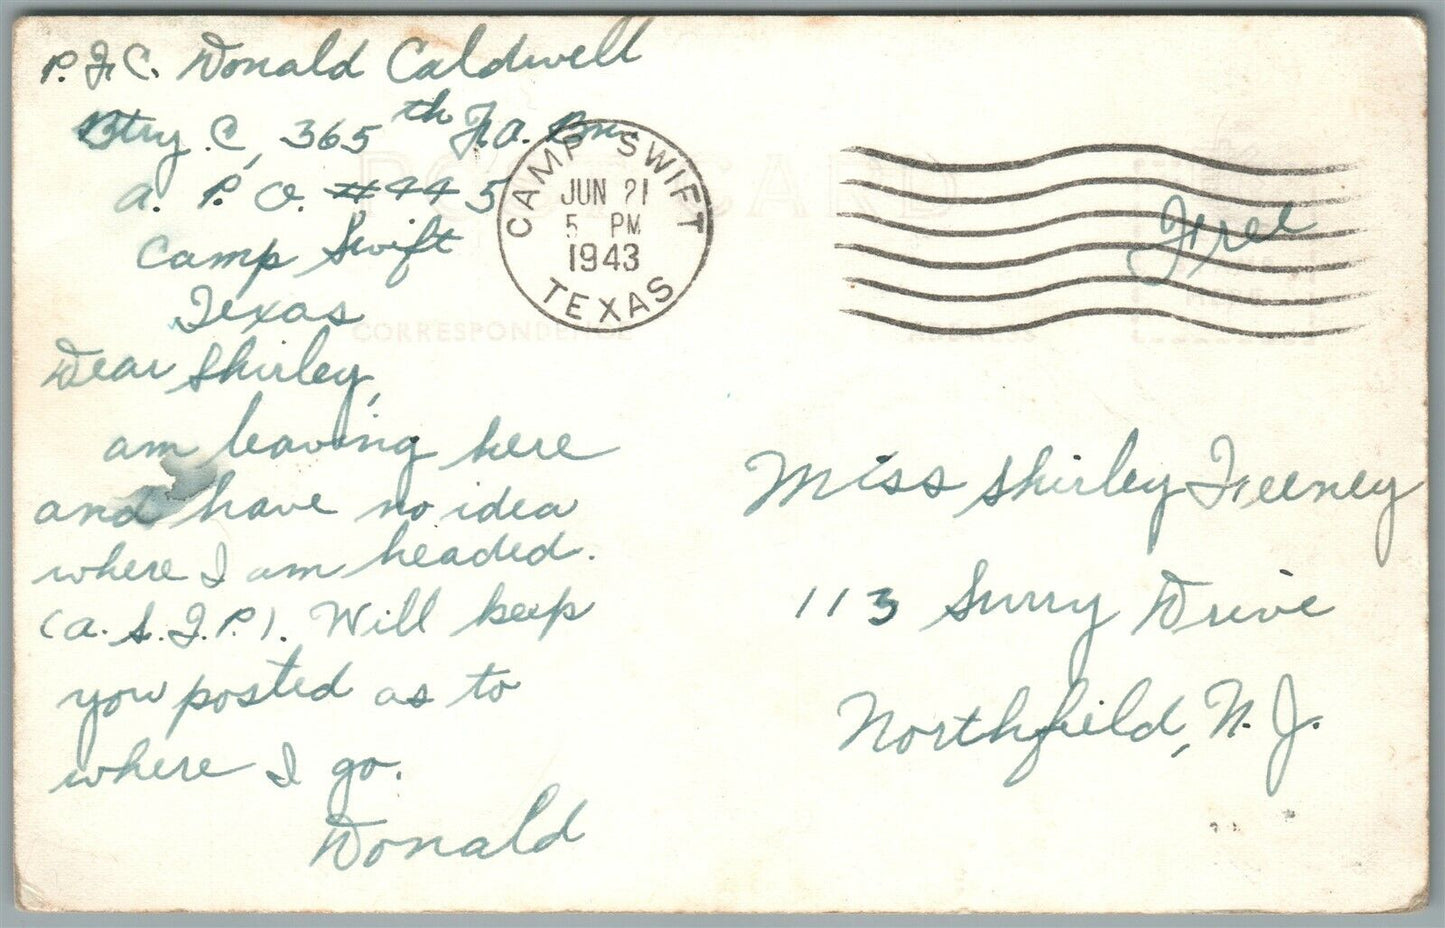 P.F.C. Donald Caldwell
Btry C, 365th F.A. Bn.
A.P.O. #445
Camp Swift
Texas
CAMP SWIFT
JUN 21
5 PM
1943
TEXAS
Free
POST CARD
CORRESPONDENCE
ADDRESS
Dear Shirley,
am leaving here
and have no idea
where I am headed.
(A.S.T.P.). Will keep
you posted as to
where I go.
Donald
Miss Shirley Feeney
113 Surry Drive
Northfield, N.J.